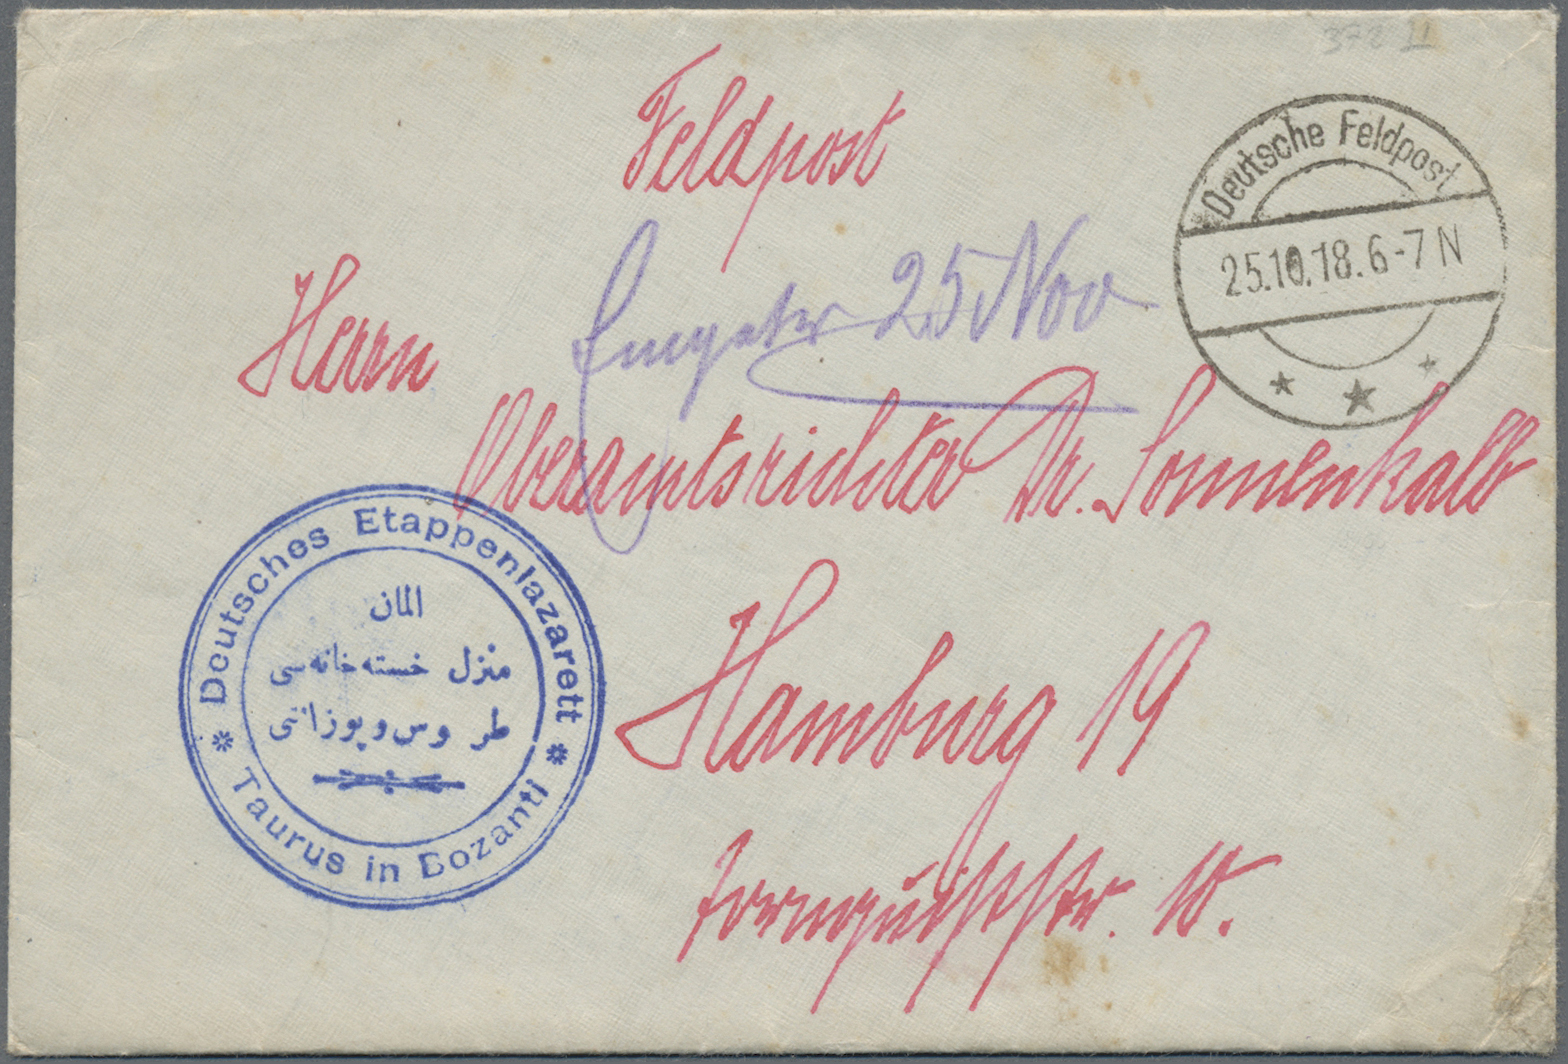 372 II
Feldpost
Deutsche Feldpost
25.10.18.6-7N
25 Nov
Herrn
Oberamtsrichter Dr. Sonnenkalb
Hamburg 19
10.
Deutsches Etappenlazarett
المان
منزل خسته خانه سی
طوروس و پوزانتی
Taurus in Bozanti